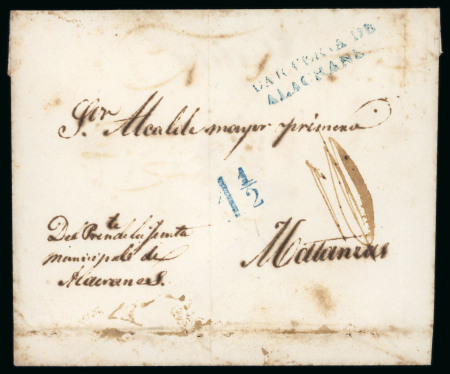 CARTERIA DE
ALACRANE
Sor. Alcalde mayor primero
1 1/2
Del Prente de la Junta
municipal de
Alacranes.
Matanzas